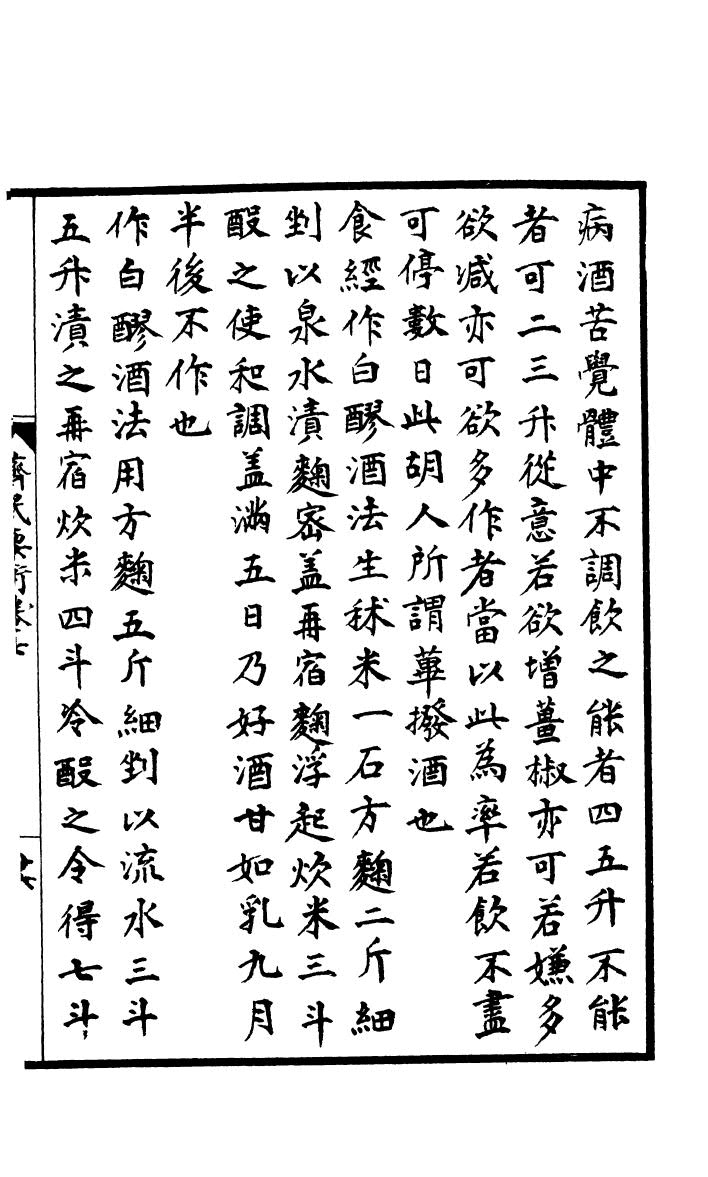 病酒苦覺體中不調飲之能者四五升不能
者可二三升從意若欲增薑椒亦可若嫌多
欲減亦可欲多作者當以此為率若飲不盡
可停數日此胡人所謂蓽撥酒也
食經作白醪酒法生秫米一石方麴二斤細
剉以泉水漬麴密盖再宿麴浮起炊米三斗
酘之使和調盖滿五日乃好酒甘如乳九月
半後不作也
作白醪酒法用方麴五斤細剉以流水三斗
五升漬之再宿炊米四斗冷酘之令得七斗
齊民要術卷七